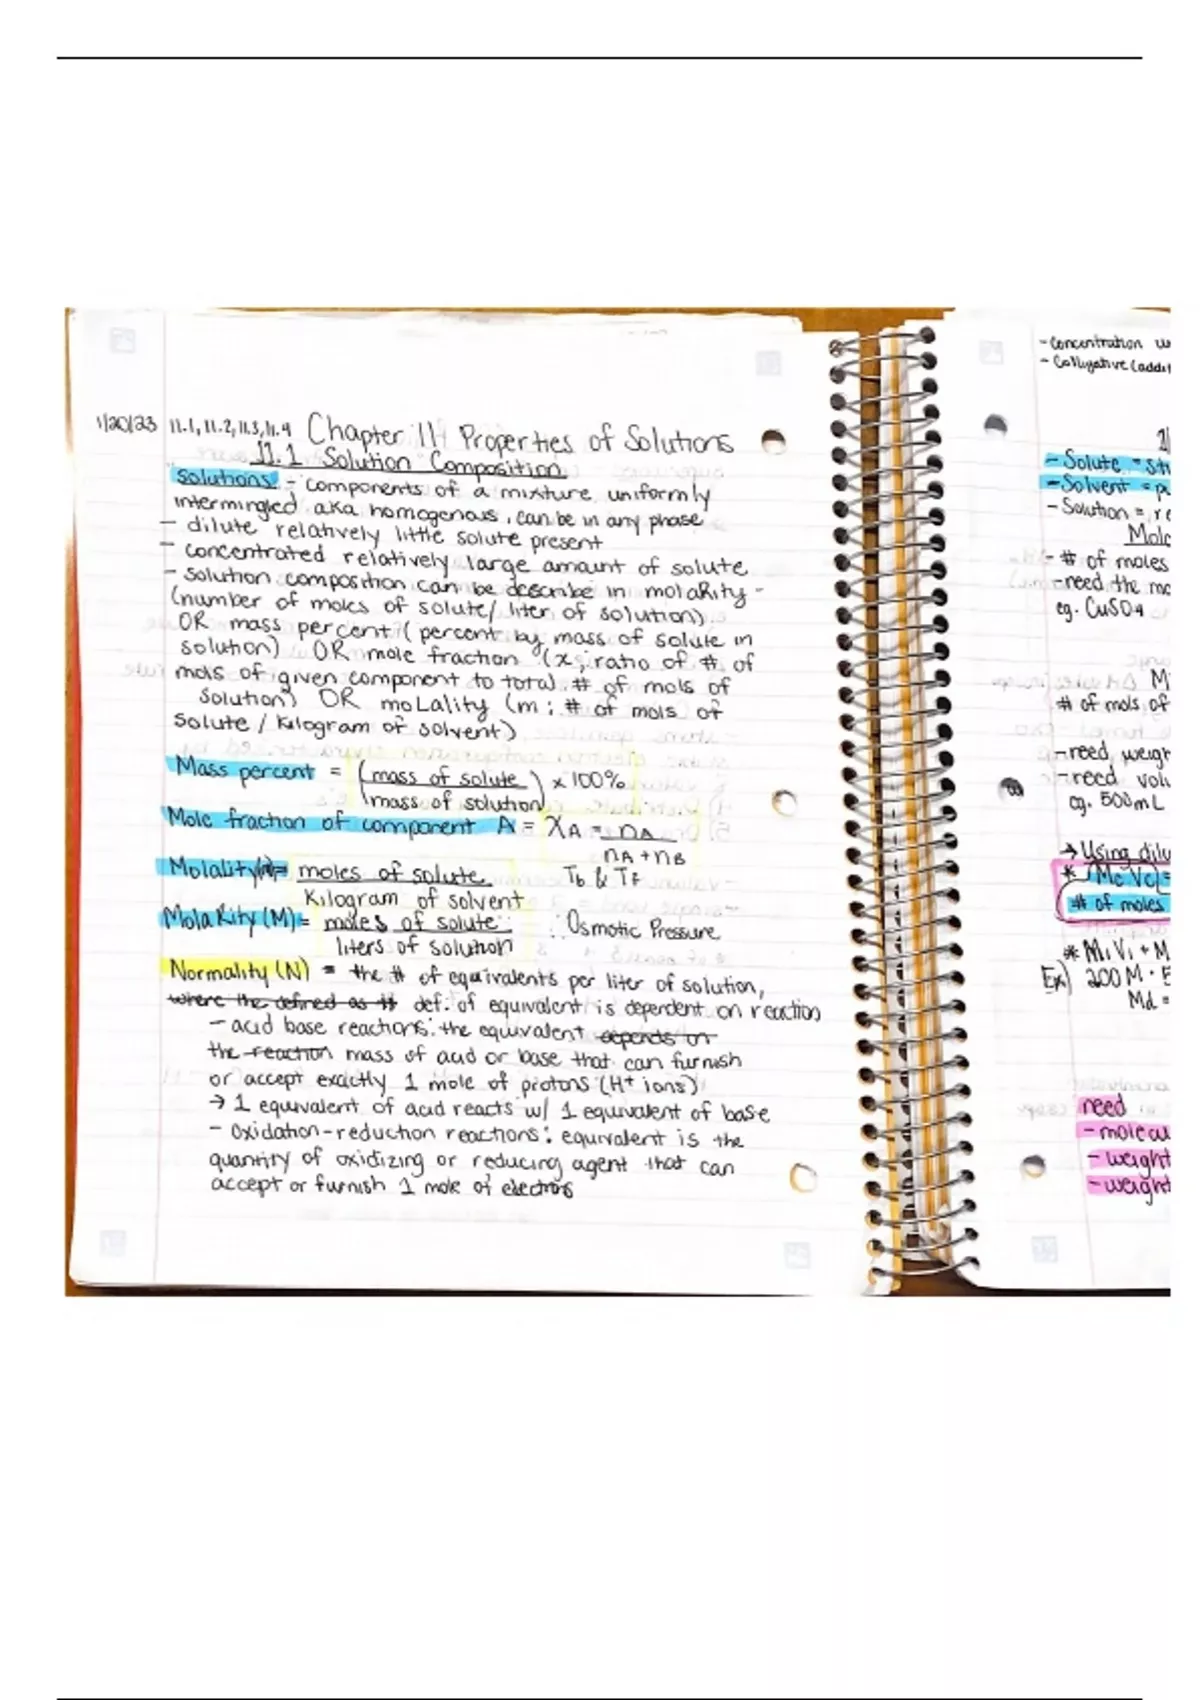 1/20/23 11.1, 11.2, 11.3, 11.4 Chapter 11 Properties of Solutions
11.1 Solution Composition
Solutions - components of a mixture uniformly
intermingled aka homogenous, can be in any phase
- dilute relatively little solute present
- concentrated relatively large amount of solute
- solution composition can be describe in molaRity -
(number of moles of solute/liter of solution)
OR mass percent (percent by mass of solute in
solution) OR mole fraction (x; ratio of # of
mols of given component to total # of mols of
solution) OR moLality (m: # of mols of
solute / kilogram of solvent)
Mass percent = (mass of solute / mass of solution) x 100%
Mole fraction of component A = XA = nA
nA + nB
Molality(m)= moles of solute Tb & Tf
kilogram of solvent
MolaRity (M)= moles of solute ∴ Osmotic Pressure
liters of solution
Normality (N) = the # of equivalents per liter of solution,
where the defined as # def. of equivalent is dependent on reaction
- acid base reactions: the equivalent depends on
the reaction mass of acid or base that can furnish
or accept exactly 1 mole of protons (H+ ions)
→ 1 equivalent of acid reacts w/ 1 equivalent of base
- Oxidation-reduction reactions: equivalent is the
quantity of oxidizing or reducing agent that can
accept or furnish 1 mole of electrons
- Concentration
- Colligative (addit
- Solute =
- Solvent =
- Solution =
Mola
- # of moles
- need the mo
eg. CuSO4
M
# of mols of
- need weigh
- need volu
eg. 500mL
→ Using dilu
* Mc Vc =
# of moles
* M1V1 + M
Ex) 200 M ·
Md =
need
- molecu
- weight
- weight